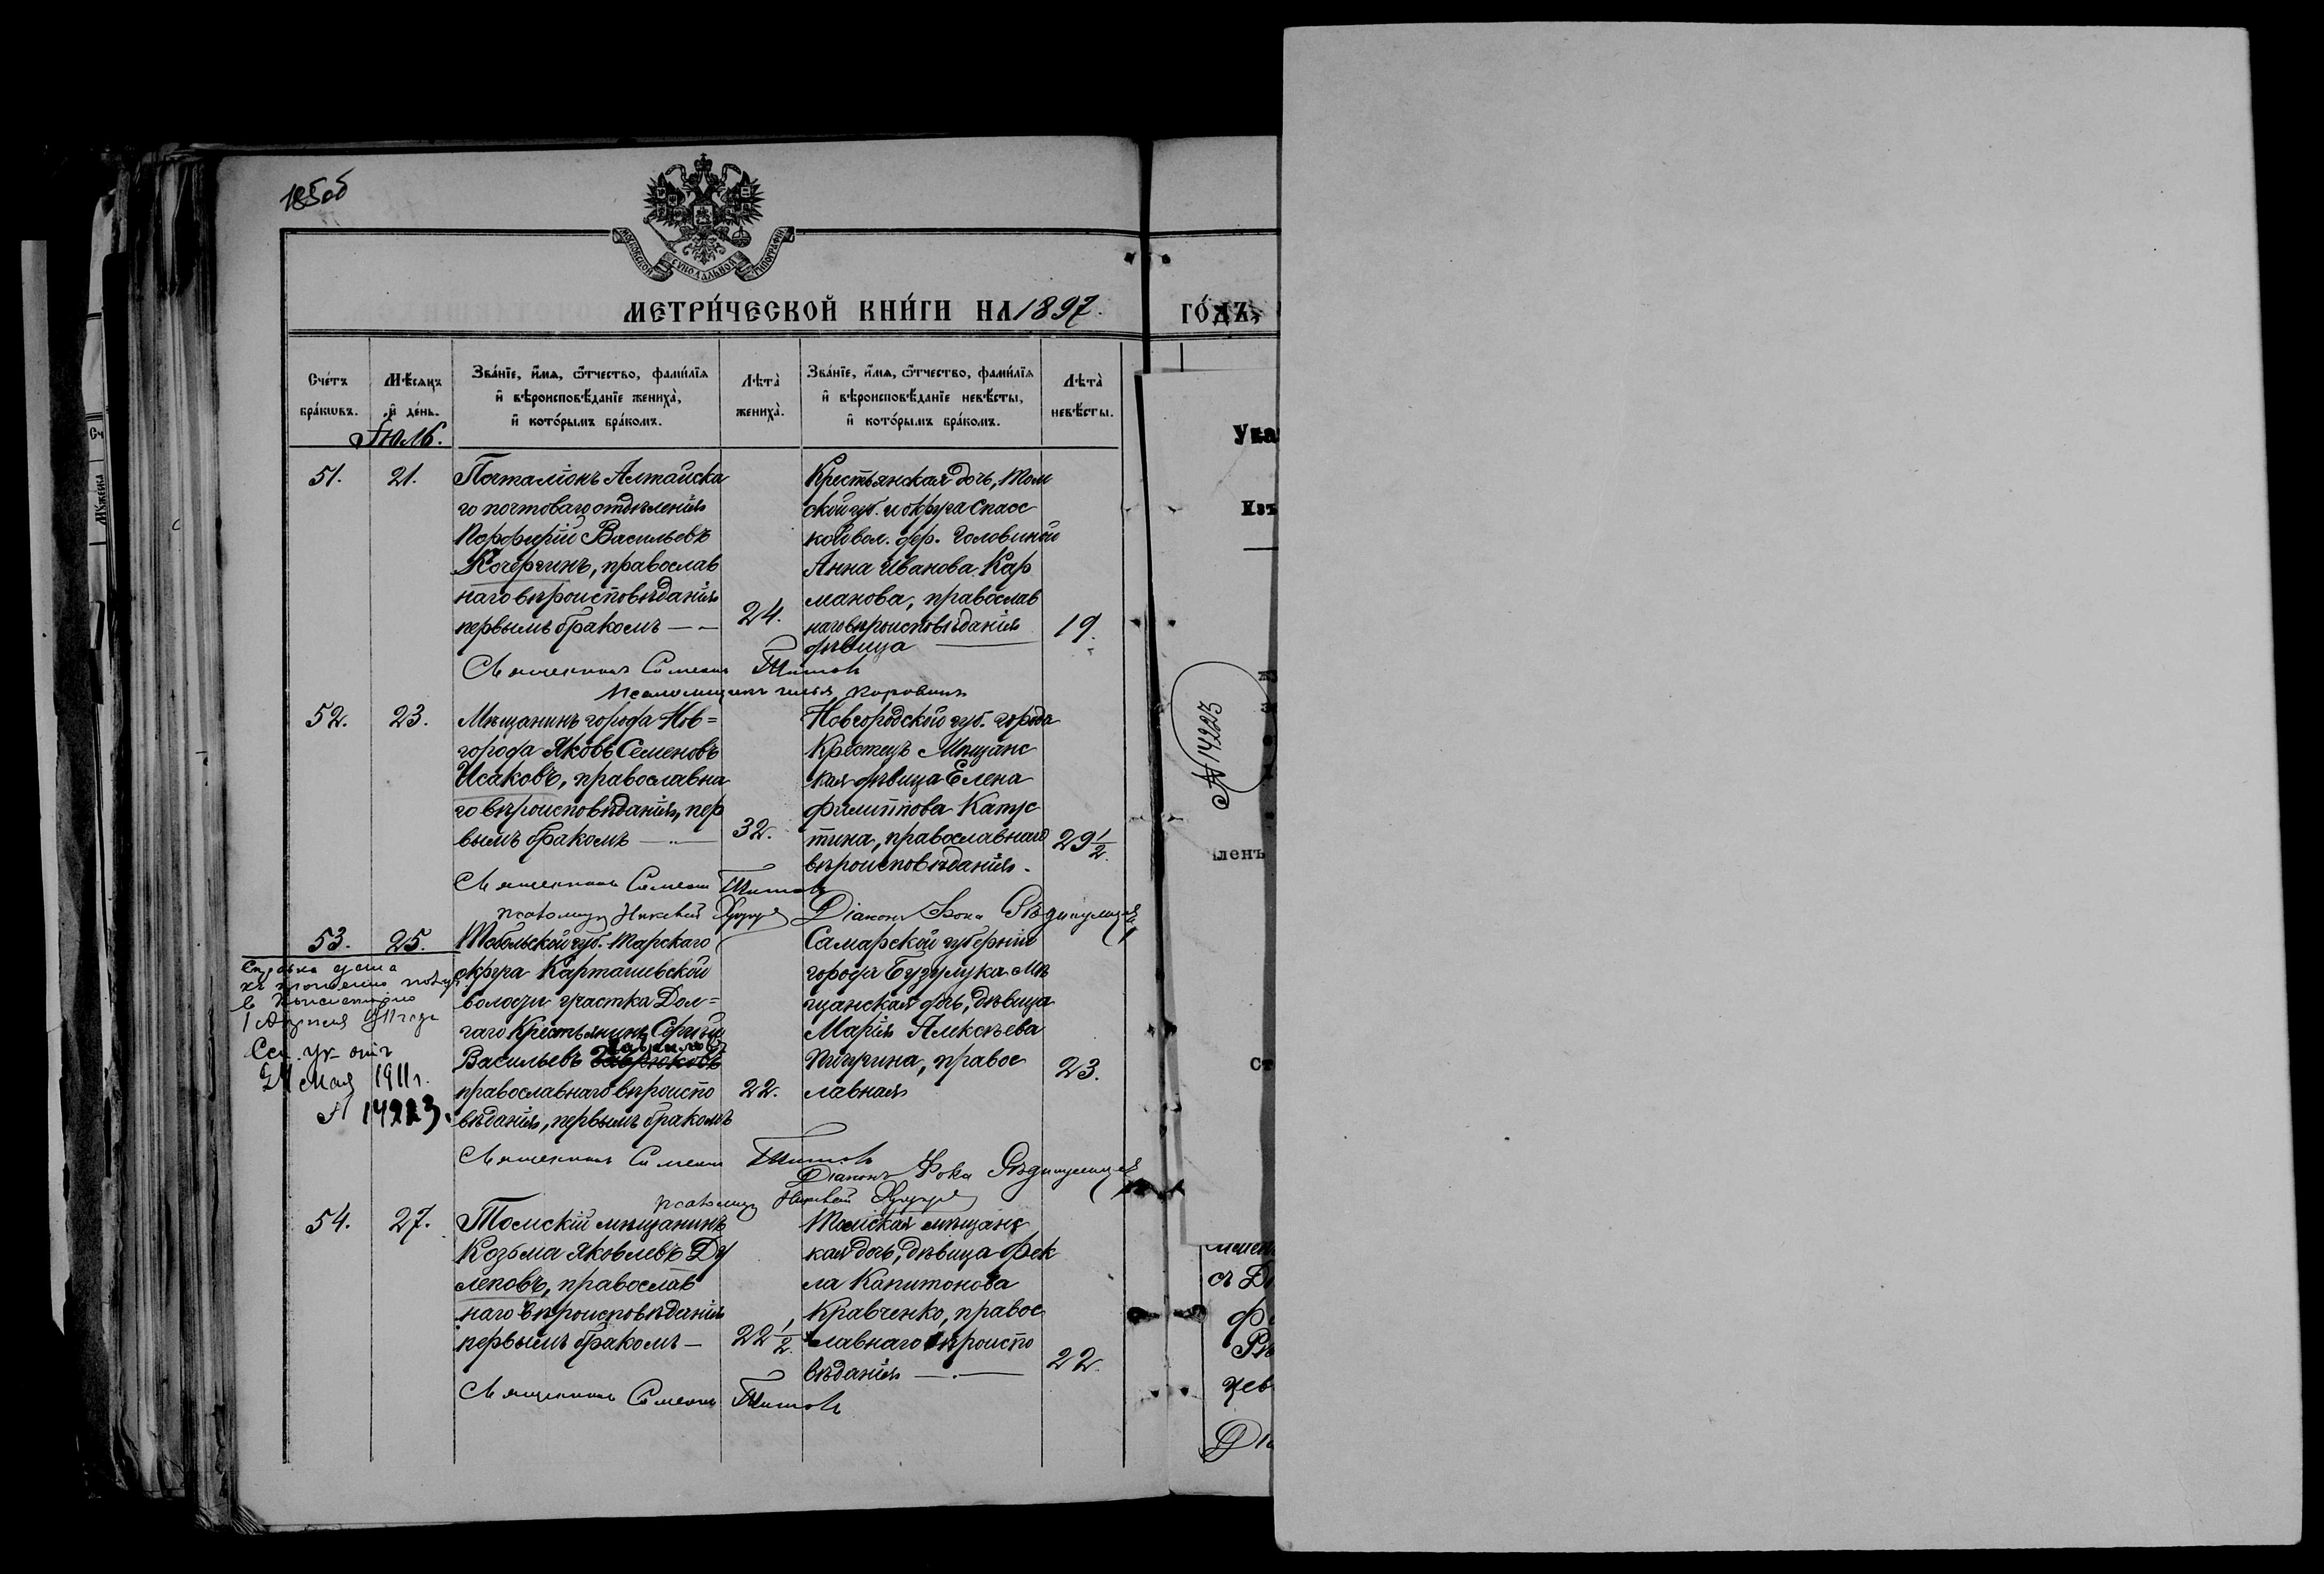 185об
МОСКОВСКОЙ СУНОДАЛЬНОЙ ТИПОГРАФІИ
МЕТРИ́ЧЕСКОЙ КНИ́ГИ НА 1897.
ГО́ДЪ,
Сче́тъ бра́кωвъ.
Мѣ́сяцъ и҆ де́нь.
Зва́нїе, и҆́мѧ, ѻ҆́тчество, фами́лїѧ и҆ вѣроисповѣ́данїе жениха̀, и҆ кото́рымъ бра́комъ.
Лѣта̀ жениха̀.
Зва́нїе, и҆́мѧ, ѻ҆́тчество, фами́лїѧ и҆ вѣроисповѣ́данїе невѣ́сты, и҆ кото́рымъ бра́комъ.
Лѣта̀ невѣ́сты.
Іюль.
51.
21.
Почталіонъ Алтайска
го почтоваго отдѣленія
Порфирій Васильевъ
Кочергинъ, православ
наго вѣроисповѣданія
первымъ бракомъ
24.
Крестьянская дочь, Том
ской губ. и округа Спасс
кой вол. дер. Головиной
Анна Иванова Кар
манова, православ
наго вѣроисповѣданія
дѣвица
19.
Священникъ Симеонъ Титовъ
Псаломщикъ Илья Коровинъ
52.
23.
Мѣщанинъ города Нов=
города Яковъ Семеновъ
Исаковъ, православна
го вѣроисповѣданія, пер
вымъ бракомъ
32.
Новгородской губ. города
Крестецъ Мѣщанс
кая дѣвица Елена
Филиппова Капус
тина, православнаго
вѣроисповѣданія.
29 1/2.
Священникъ Симеонъ Титовъ
Діаконъ Фока
53.
25.
Тобольской губ. Тарскаго
округа Карташевской
волости участка Дол=
гаго Крестьянинъ Сергѣй
Васильевъ
православнаго вѣроиспо
вѣданія, первымъ бракомъ
22.
Самарской губерніи
города Бузулука мѣ
щанская дочь, дѣвица
Марія Алексѣева
Пичугина, правос
лавная
23.
Справка дана
1 Апрѣля
24 мая 1911 г.
№ 14223.
Священникъ Симеонъ Титовъ
Діаконъ Фока
54.
27.
Томскій мѣщанинъ
Козьма Яковлевъ Ду
леповъ, православ
наго вѣроисповѣданія
первымъ бракомъ
22 1/2.
Томская мѣщанс
кая дочь, дѣвица Фек
ла Капитонова
Кравченко, правос
лавнаго вѣроиспо
вѣданія
22.
Священникъ Симеонъ Титовъ
Ука
Изъ
№ 14223
ленъ